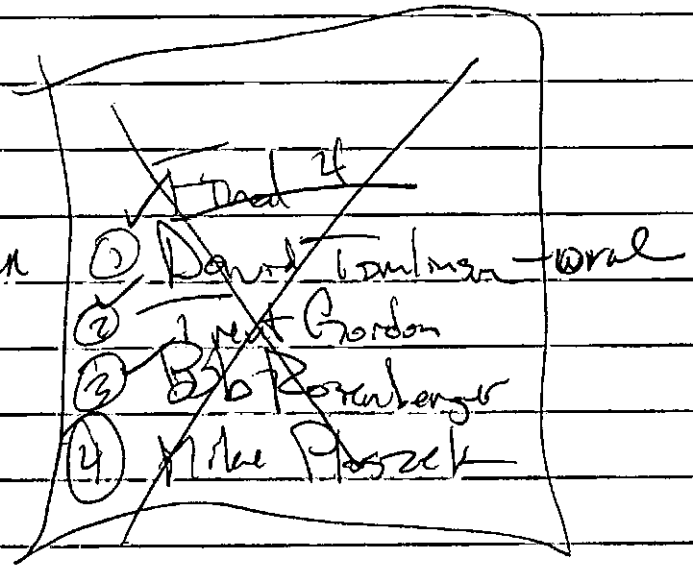 Final 4
n ① David Tomlinson - oral
② Trent Gordon
③ Bob Rosenberger
④ Mike Ptaszek